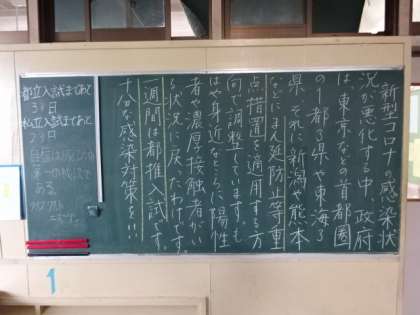 新型コロナの感染状
況が悪化する中、政府
は、東京などの首都圏
の1都3県や東海3
県、それに新潟や熊本
などにまん延防止等重
点措置を適用する方
向で調整しています。も
はや身近なところに陽性
者や濃厚接触者がい
る状況に戻ったわけです。
一週間は都推入試です。
十分な感染対策を!!
都立入試まであと
日
私立入試まであと
日
自信は成功の
第一の秘訣で
ある
1